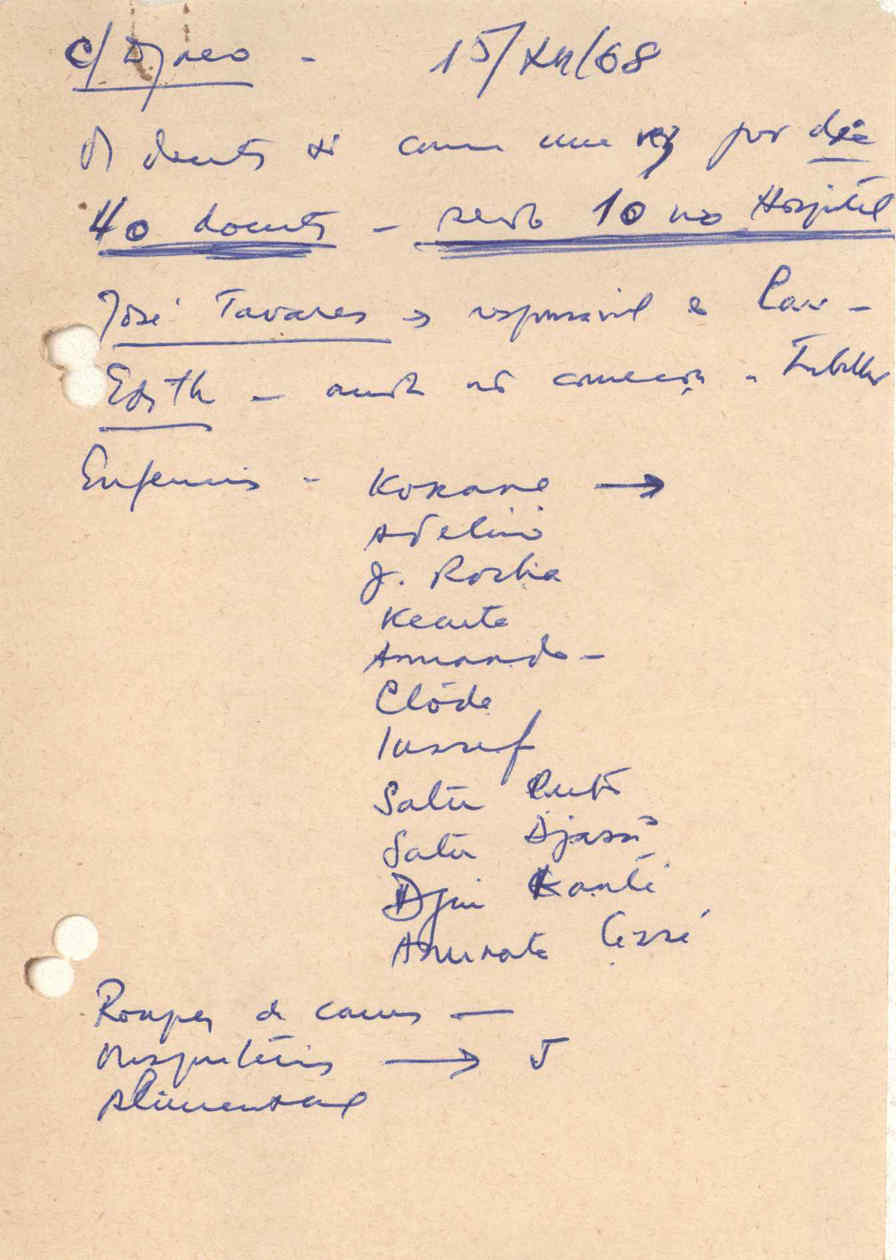 c/ - 15/XII/68
Os doentes só comem uma vez por dia
40 doentes - sendo 10 no Hospital
José Tavares → responsável e
Edith - ainda não começou -
Enfermeiros - Korane →
Adelino
J. Rocha
Keauta
Armando -
Clóde
Iussuf
Satu
Satu Djassi
Djui Kanté
Aminata Cissé
Roupas de cama —
Mosquiteiros → 5
Alimentação